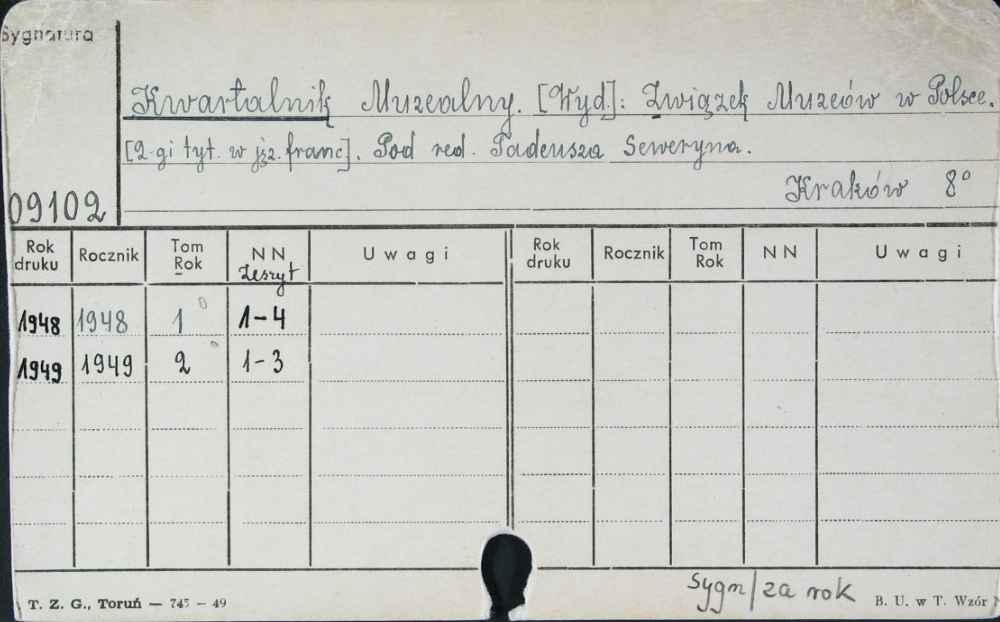 Sygnatura
Kwartalnik Muzealny. [Wyd.]: Związek Muzeów w Polsce.
[2-gi tyt. w jęz. franc]. Pod red. Tadeusza Seweryna.
Kraków 8°
09102
Rok druku Rocznik Tom Rok NN Zeszyt Uwagi Rok druku Rocznik Tom Rok NN Uwagi
1948 1948 1 1-4
1949 1949 2 1-3
Sygn/za rok
T. Z. G., Toruń — 745 — 49 B. U. w T. Wzór